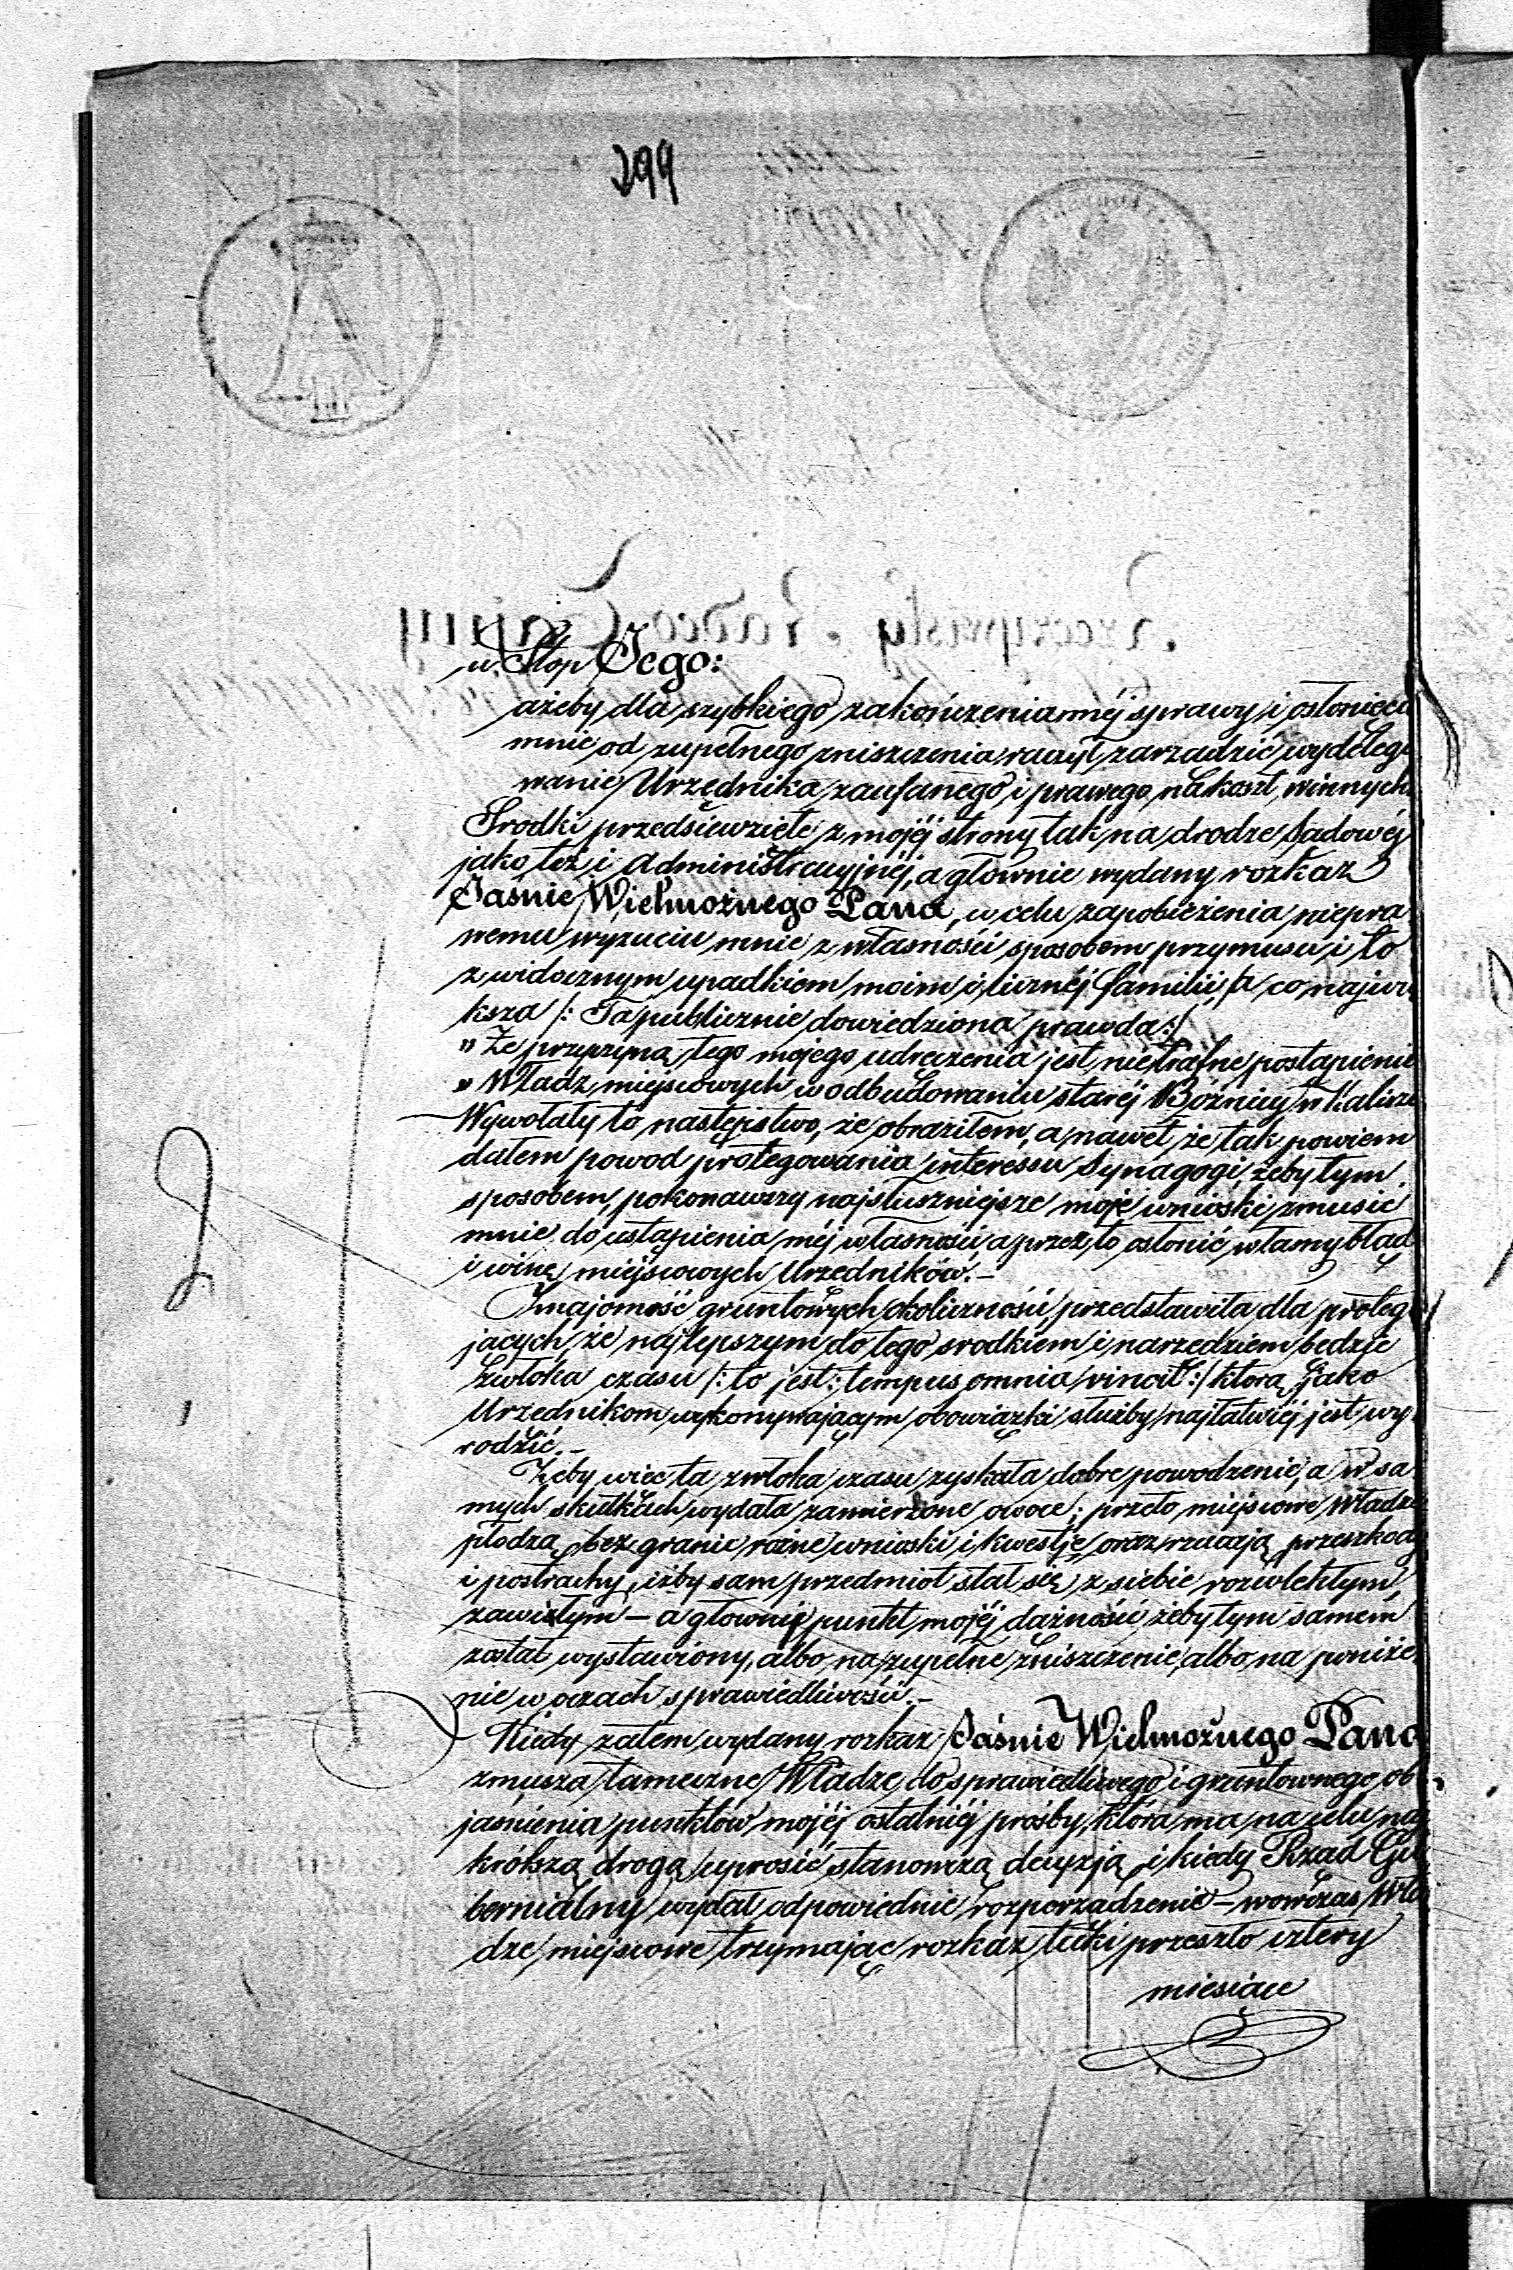 299
u Stop Jego:
ażeby dla szybkiego zakończenia mej sprawy i osłonięcia
mnie od zupełnego zniszczenia raczył zarządzić wydelego
wanie Urzędnika zaufanego i prawego, na koszt winnych
Srodki przedsiewzięte z mojéj strony tak na drodze Sądowéj
jako też i Administracyjnéj, a głównie wydany rozkaz
Jaśnie Wielmożnego Pana, w celu zapobieżenia niepra
wemu wyzuciu mnie z własności sposobem przymusu i to
z widocznym upadkiem moim i licznéj familii, a co najwię
ksza /: Ta publicznie dowiedziona prawda:/
„Że przyczyną tego mojego udręczenia jest nietrafne postąpienie
„Władz miejscowych w odbudowaniu staréj Bóżnicy w Kaliszu
Wywołały to następstwo, że obraziłem, a nawet że tak powiem
dałem powod protegowania interessu Synagogi, żeby tym
sposobem, pokonawszy najsłuszniejsze moje wnioski, zmusić
mnie do ustąpienia méj własności, a przez to osłonić własny błąd
i winę miejscowych Urzędników.–
Znajomość gruntowych okoliczności, przedstawiła dla protegu
jących, że najlepszym do tego srodkiem i narzędziem będzie
Zwłoka czasu /: to jest: tempus omnia vincit:/ którą Jako
Urzędnikom wykonywającym obowiązki służby najłatwiéj jest wy
rodzić.–
Żeby więc ta zwłoka czasu zyskała dobre powodzenie, a w sa
mych skutkach wydała zamierzone owoce; przeto miejscowe Władze
płodzą bez granic różne wnioski i kwestje, oraz rzucają przeszkody
i postrachy, iżby sam przedmiot stał się z siebie rozwlekłym,
zawiłym – a główny punkt mojéj dążności żeby tym samem
został wystawiony, albo na zupełne zniszczenie, albo na poniże
nie w oczach sprawiedliwości.–
Kiedy zatem wydany rozkaz Jaśnie Wielmożnego Pana
zmusza tameczne Władze do sprawiedliwego i gruntownego ob
jaśnienia punktów mojéj ostatniéj prośby, która ma na celu naj
krótszą drogą uprosić stanowczą decyzją i kiedy Rząd Gu
bernialny wydał odpowiednie rozporządzenie – wowczas Wła
dze miejscowe trzymając rozkaz tuki przeszło cztery
miesiące